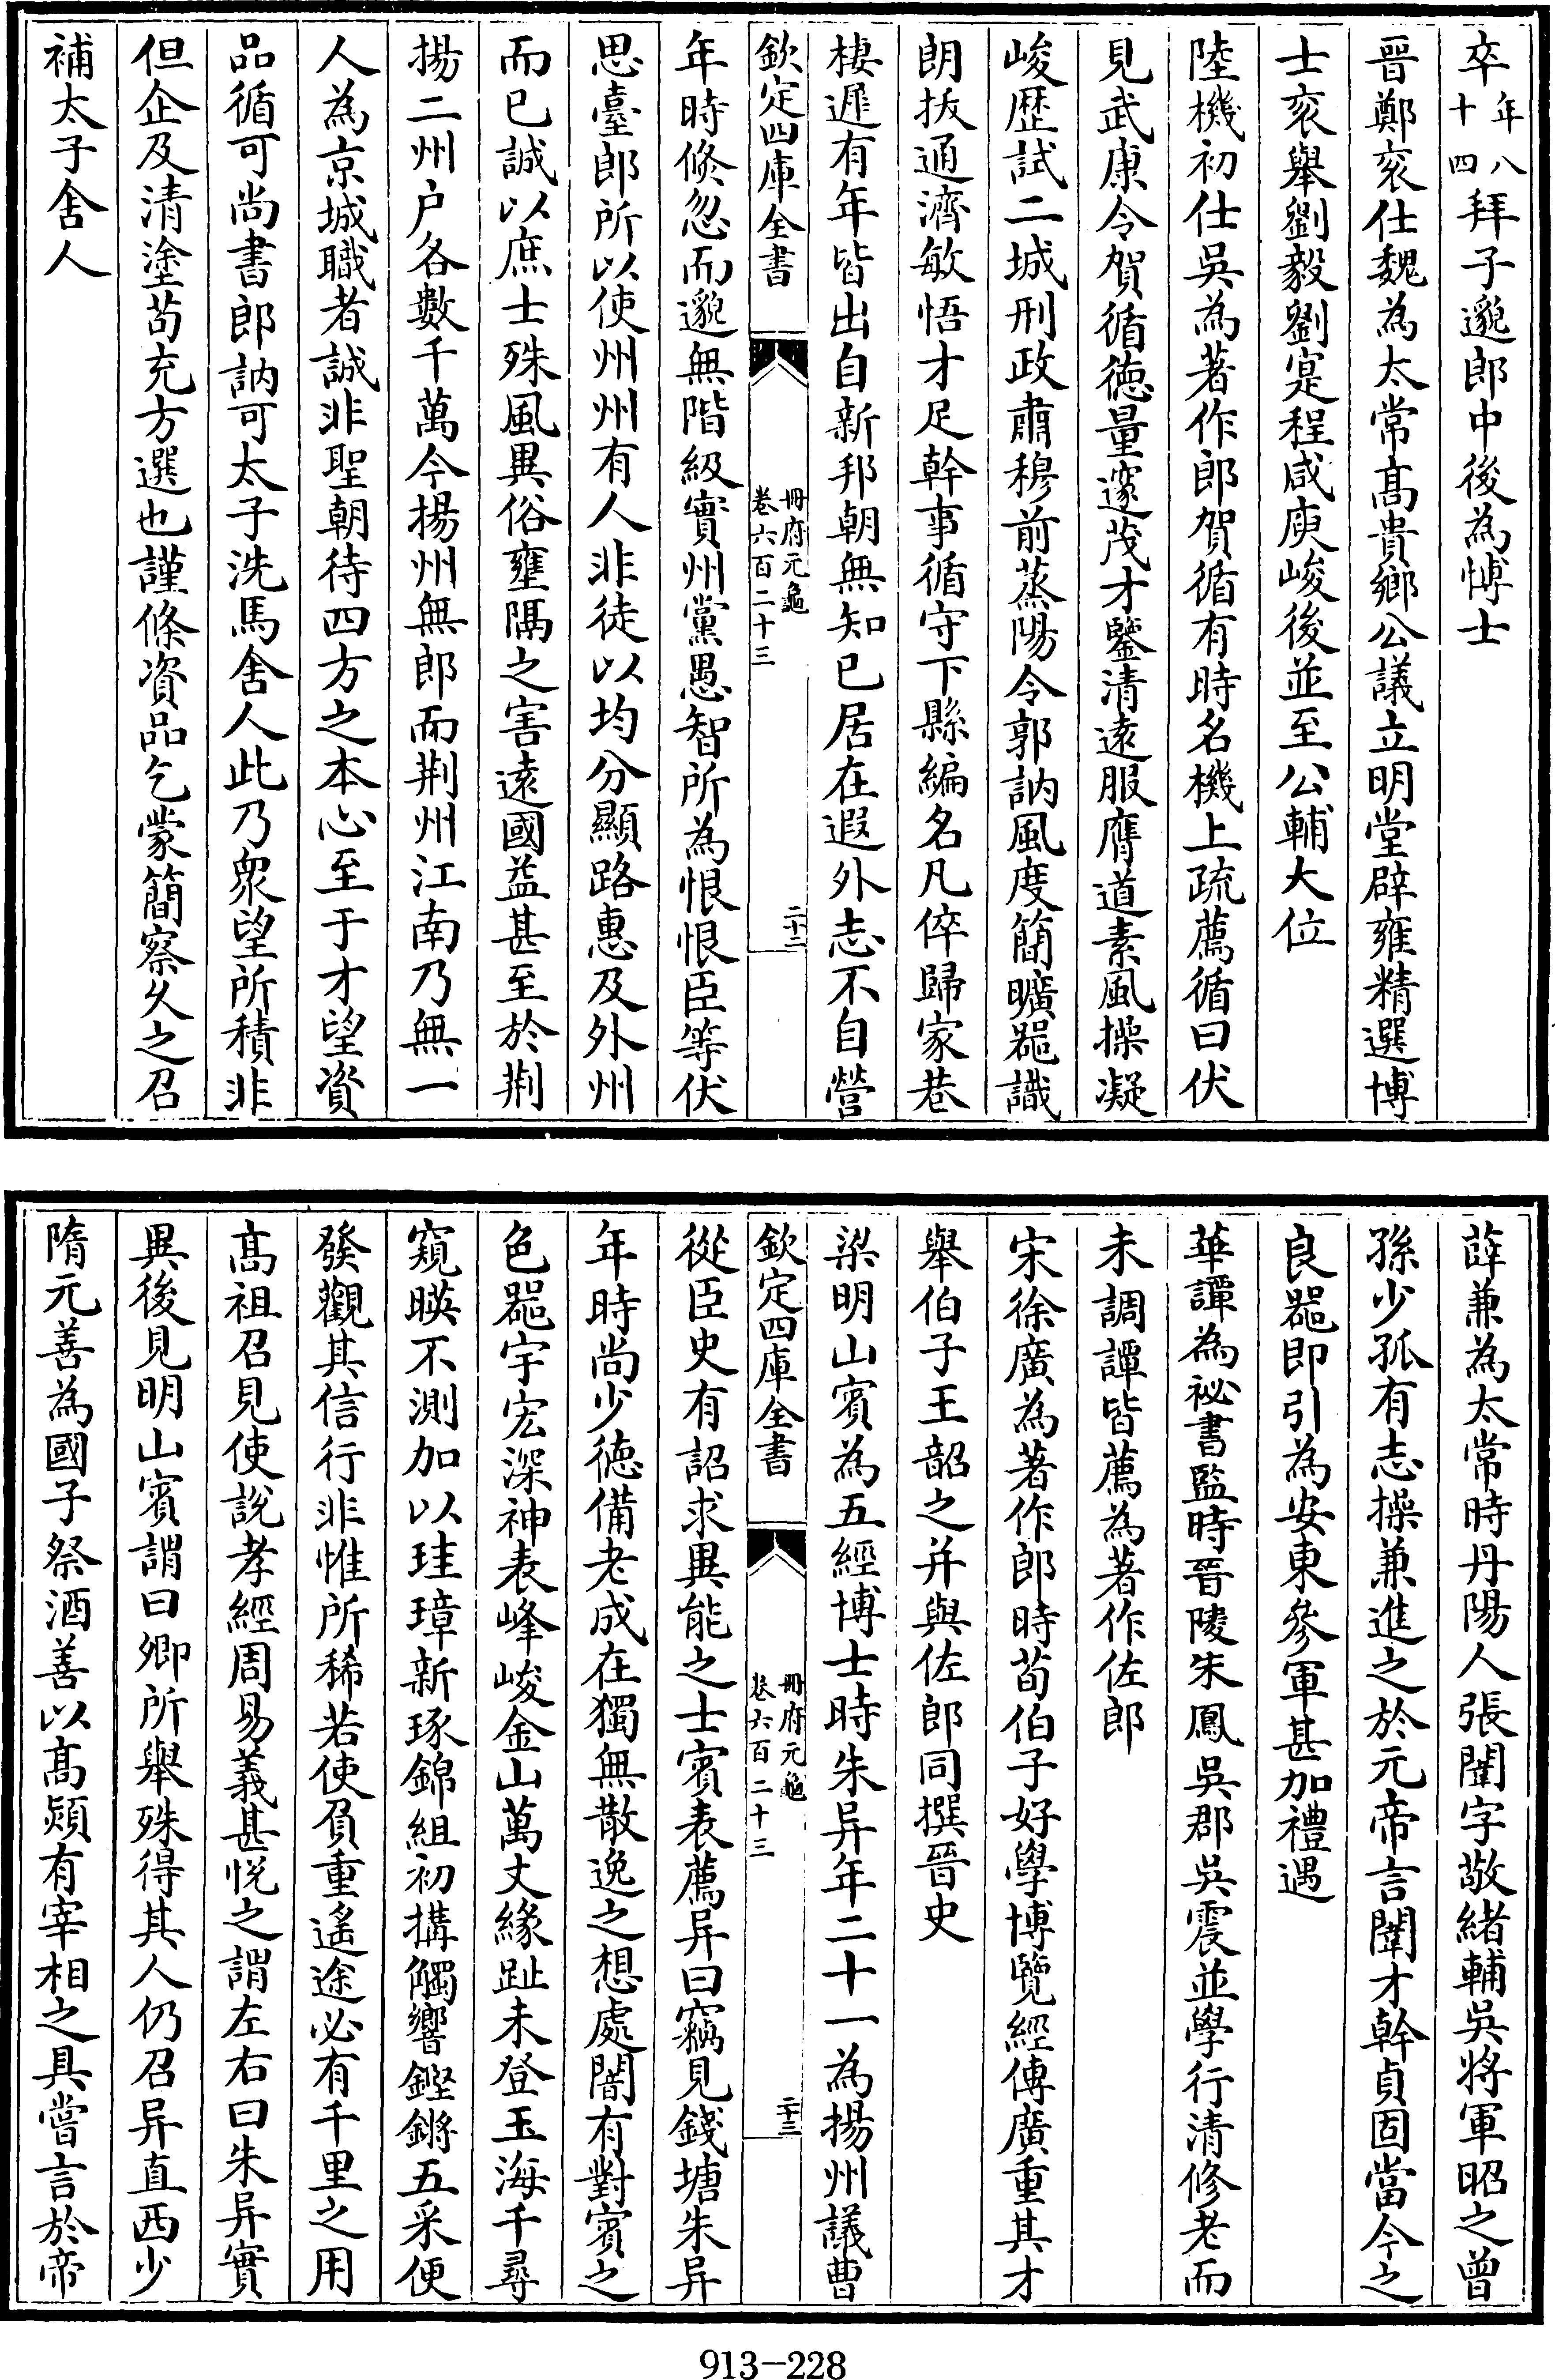 卒年八十四拜子邈郎中後為愽士
晉鄭袤仕魏為太常髙貴鄉公議立明堂辟雍精選博
士袤舉劉毅劉寔程咸庾峻後並至公輔大位
陸機初仕吳為著作郎賀循有時名機上疏薦循曰伏
見武康令賀循徳量邃茂才鑒清遠服膺道素風操凝
峻歴試二城刑政肅穆前蒸陽令郭訥風度簡曠器識
朗拔通濟敏悟才足幹事循守下縣編名凡倅歸家巷
棲遲有年皆出自新邦朝無知已居在遐外志不自營
欽定四庫全書
冊府元龜
卷六百二十三
二十二
年時倐忽而邈無階級實州黨愚智所為恨恨臣等伏
思臺郎所以使州州有人非徒以均分顯路惠及外州
而已誠以庶士殊風異俗壅隅之害遠國益甚至於荆
揚二州户各數千萬今揚州無郎而荆州江南乃無一
人為京城職者誠非聖朝待四方之本心至于才望資
品循可尚書郎訥可太子洗馬舍人此乃衆望所積非
但企及清塗苟充方選也謹條資品乞蒙簡察乆之召
補太子舍人
薛兼為太常時丹陽人張闓字敬緒輔吳將軍昭之曾
孫少孤有志操兼進之於元帝言闓才幹貞固當今之
良器即引為安東參軍甚加禮遇
華譚為祕書監時晉陵朱鳳吳郡吳震並學行清修老而
未調譚皆薦為著作佐郎
宋徐廣為著作郎時荀伯子好學博覽經傳廣重其才
舉伯子王韶之并與佐郎同撰晉史
梁明山賓為五經博士時朱异年二十一為揚州議曹
欽定四庫全書
冊府元龜
卷六百二十三
二十三
從臣史有詔求異能之士賓表薦异曰竊見錢塘朱异
年時尚少徳備老成在獨無散逸之想處闇有對賓之
色器宇宏深神表峰峻金山萬丈緣趾未登玉海千尋
窺映不測加以珪璋新琢錦組初搆觸響鏗鏘五采便
發觀其信行非惟所稀若使負重遙途必有千里之用
髙祖召見使說孝經周易義甚悅之謂左右曰朱异實
異後見明山賓謂曰卿所舉殊得其人仍召异直西少
隋元善為國子祭酒善以髙熲有宰相之具嘗言於帝
913-228